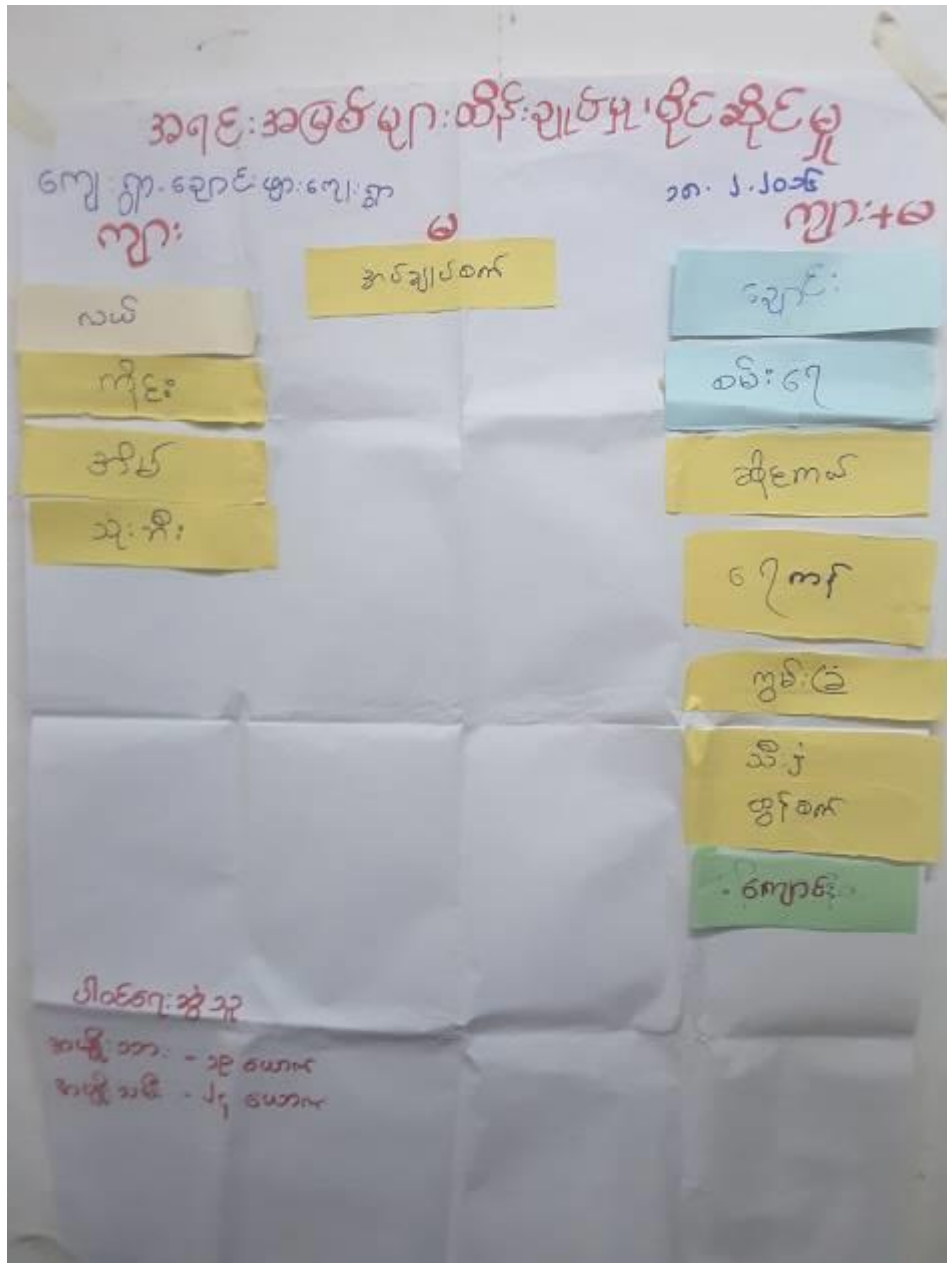 အရင်းအမြစ်များထိန်းချုပ်မှု၊ပိုင်ဆိုင်မှု
ကျေးရွာ-ချောင်းဖျားကျေးရွာ
၁၈.၂.၂၀၁၆
ကျား
မ
ကျား+မ
လယ်
ကိုင်း
အိမ်
သုံးဘီး
အပ်ချုပ်စက်
ချောင်း
စမ်းရေ
ဆိုင်ကယ်
ရေကန်
ကွမ်းခြံ
သီးနှံ
ထွန်စက်
ကျောင်း
ပါဝင်ဆွေးနွေးသူ
အမျိုးသား - ၁၉ ယောက်
အမျိုးသမီး - ၂၄ ယောက်